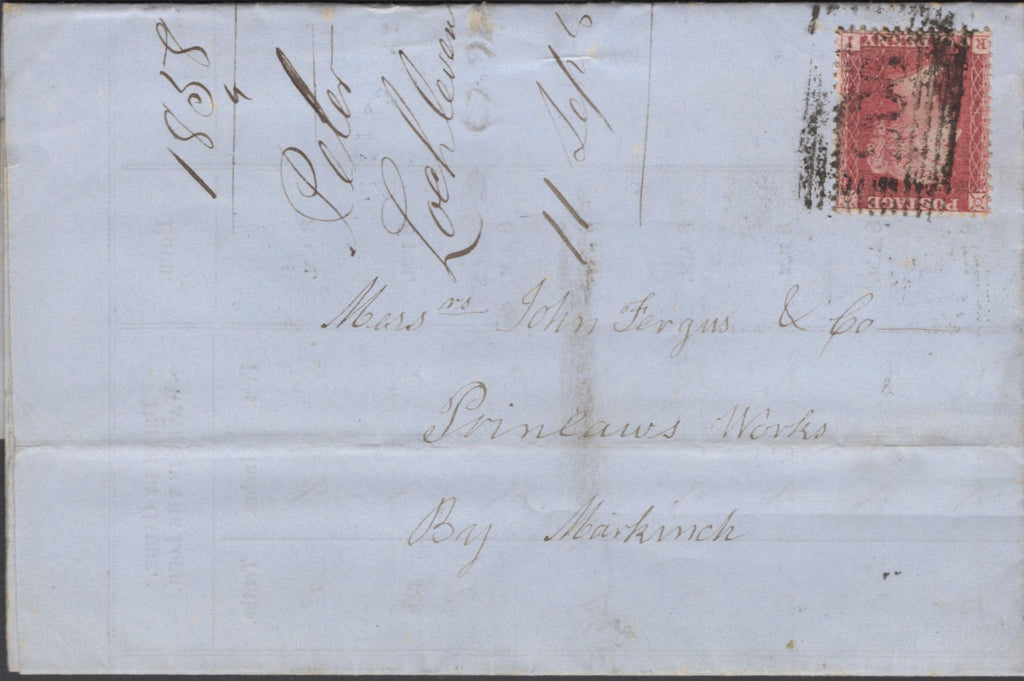 1858
Peter
Lochleven
11 Sept 6
Messrs John Fergus & Co
Prinlaws Works
By Markinch
POSTAGE
PENNY
R I